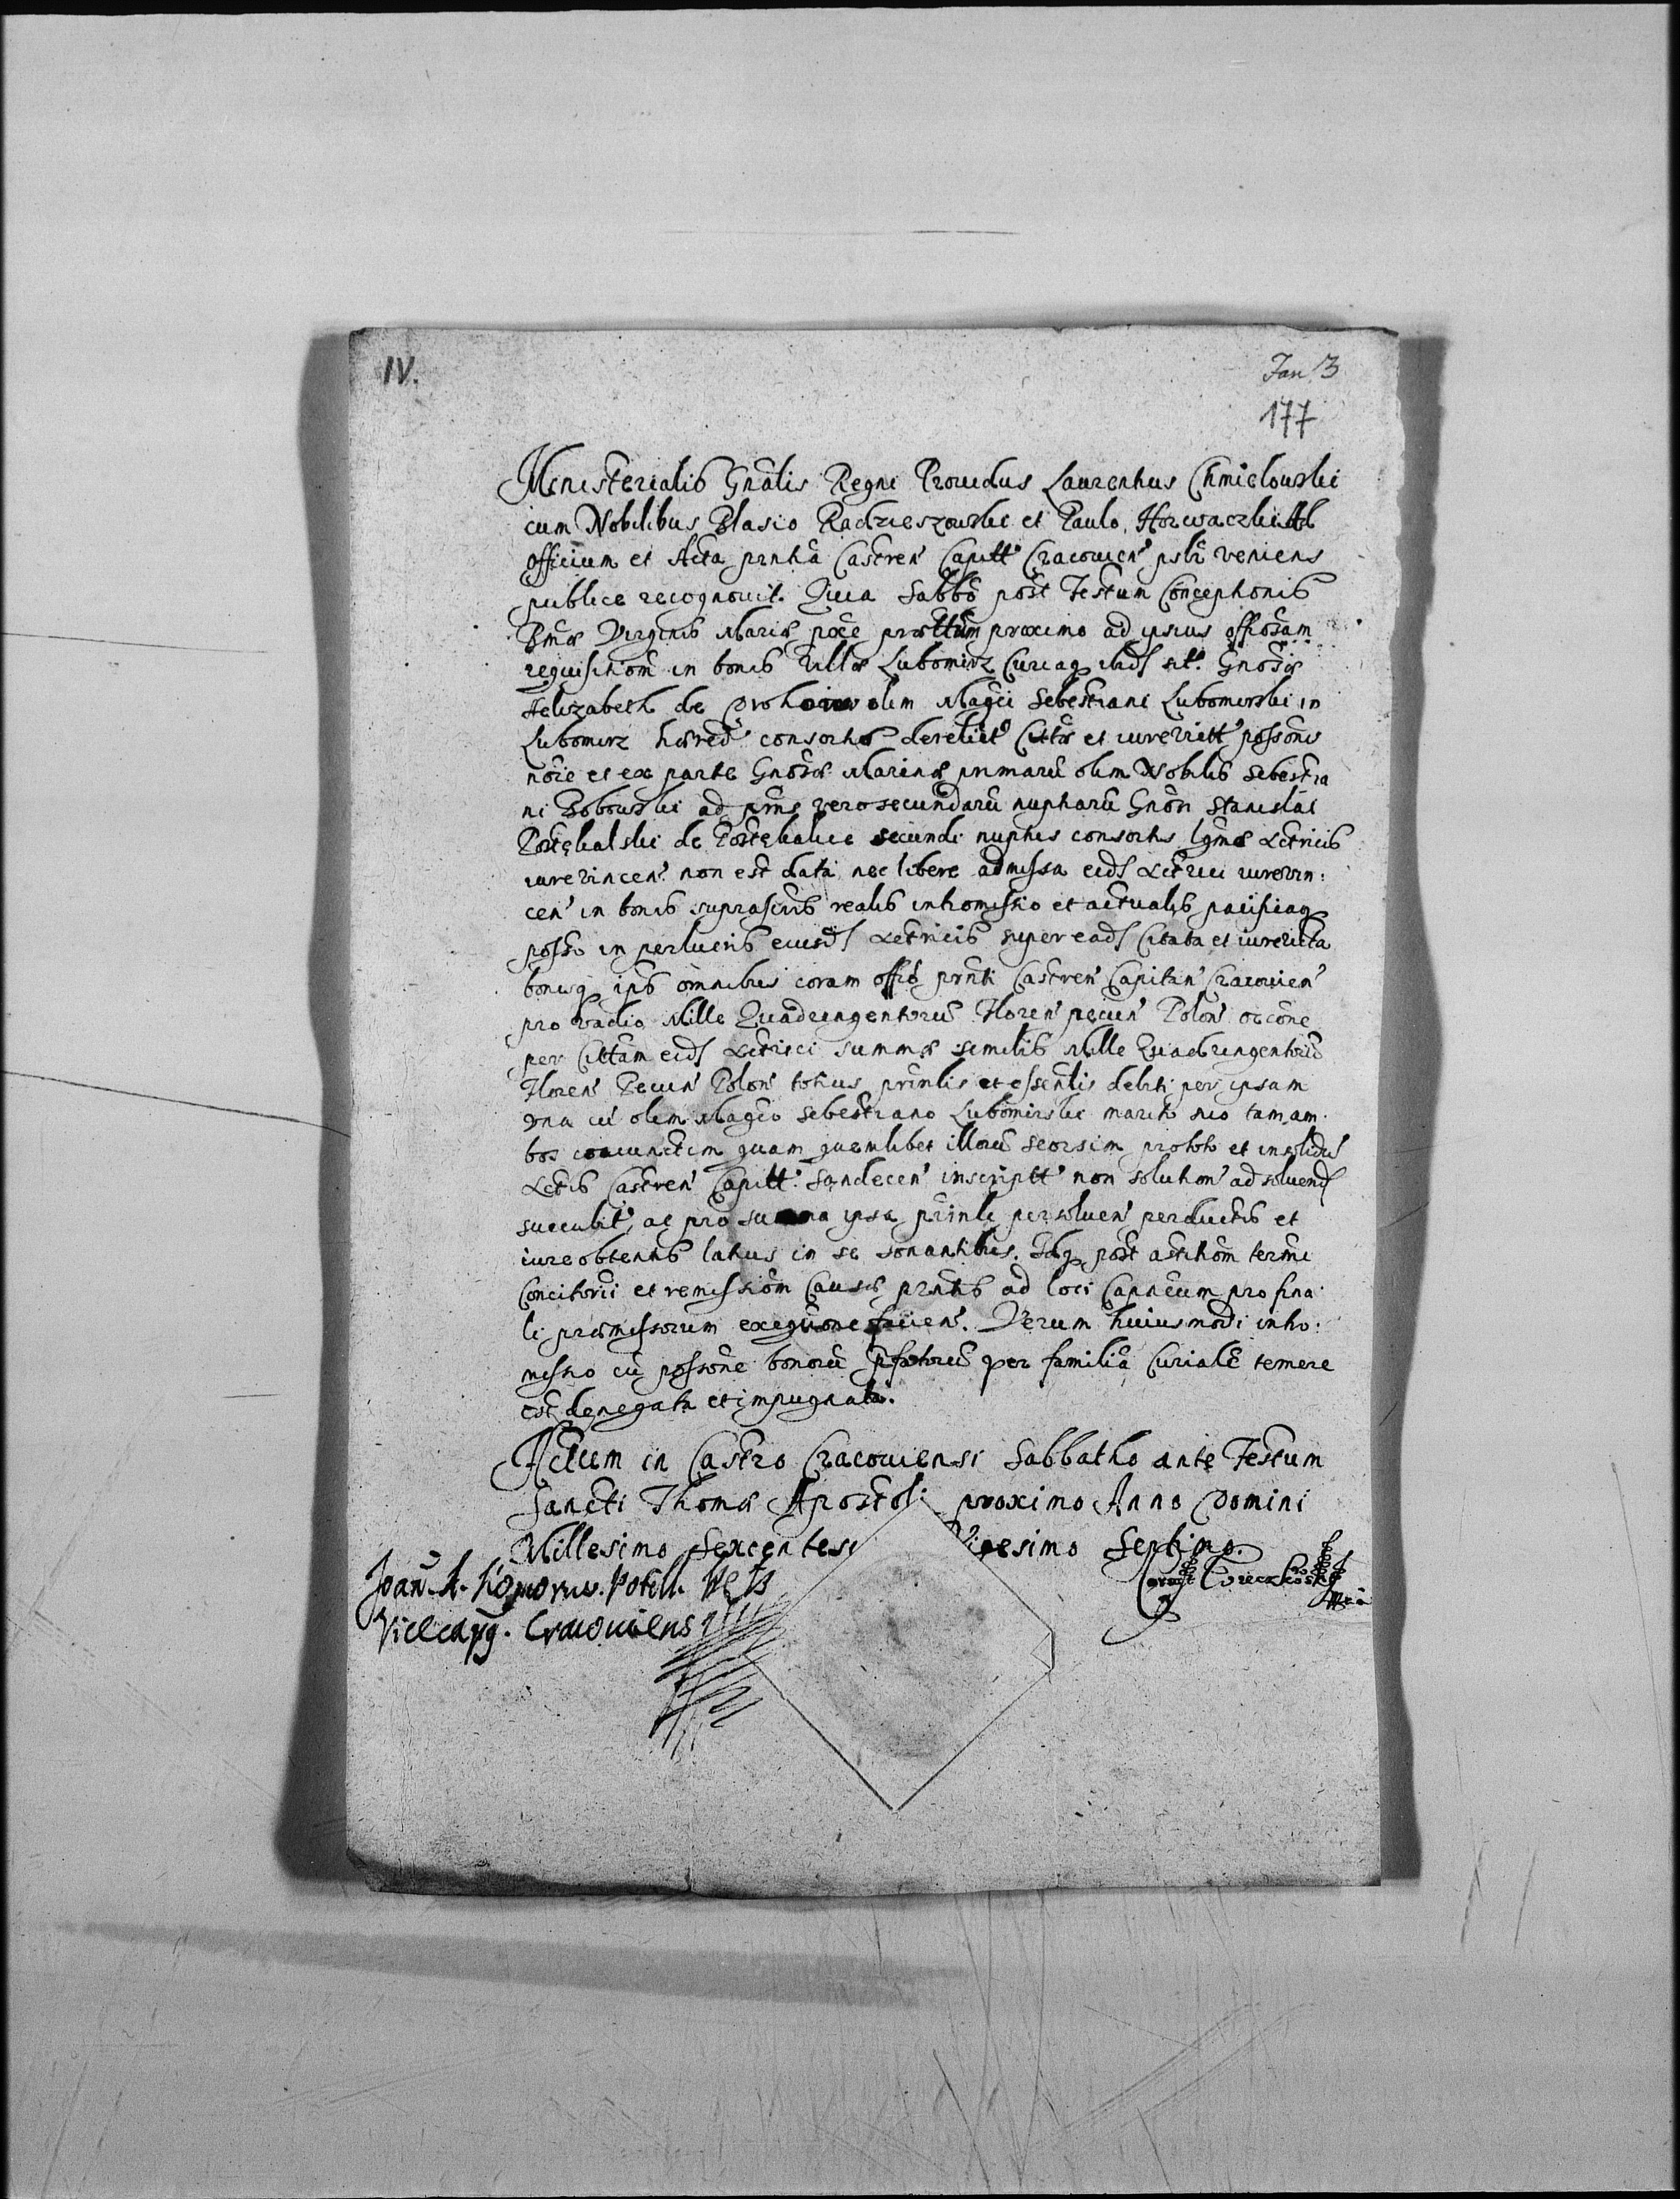 IV.
Jan 3
177
Ministerialis Gnãlis Regni Prouidus Laurentius Chmielowski
cum Nobilibus Blasio Radzieszowski et Paulo Horwaczki Ad
officium et Acta prntia Castren Capitt Cracouien pslr veniens
publice recognouit. Quia Sabbo post Festum Conceptionis
Bmæ Virginis Mariæ poxe prættum proximo ad ipsius offiosam
requisitiom in bonis Villæ Lubomirz Curiaq ibid sit. Gnosæ
Helizabeth de olim Magci Sebestiani Lubomirski in
Lubomirz hæred consortis derelict Cittæ et iureuitt possonis
noie et ex parte Gnosæ Marinæ primaru olim Nobilis Sebestia
ni Bobowski ad prns vero secundaru nuptiaru Gnosi Stanislai
Postekalski de Postekalice secundi nuptiis consortis lgmæ Actricis
iureuincen non est data nec libere admissa eid Actrici iureuin:
cen in bonis suprascris realis intromissio et actualis pacificaq
posso in perlucris eiusd Actricis super ead Citata et iureuicta
bonisq ipis omnibus coram offio prnti Castren Capitan Cracouien
pro vadio Mille Quadringentoru Floren pecun Polon occone
per Cittam eid Actrici summæ similis Mille Quadringentoru
Floren Pecun Polon totius prinlis et essenlis debiti per ipsam
una cu olim Magco Sebestiano Lubomirski marito suo tam am
bos coniunctim quam quemlibet illoru seorsim pro toto et insolidu
Actis Castren Capitt. Sandecen inscriptt non solution ad soluend
succubit, ac pro summa ipsa prinli persoluen perductis et
iure obtentis latius in se sonantibus. Idq post actitiom termi
Concitorii et remissiom Causæ prntis ad loci Capneum pro fina
li præmissorum exeqtione facien. Verum huiusmodi intro:
missio cu possone bonoru præfatoru per familia Curiale temere
est denegata et impugnata.
Actum in Castro Cracouiensi Sabbatho ante Festum
Sancti Thomæ Apostoli proximo Anno Domini
Millesimo Sexcentesi Vigesimo Septimo.
Joan. A.
Vicecapg. Cracouiens